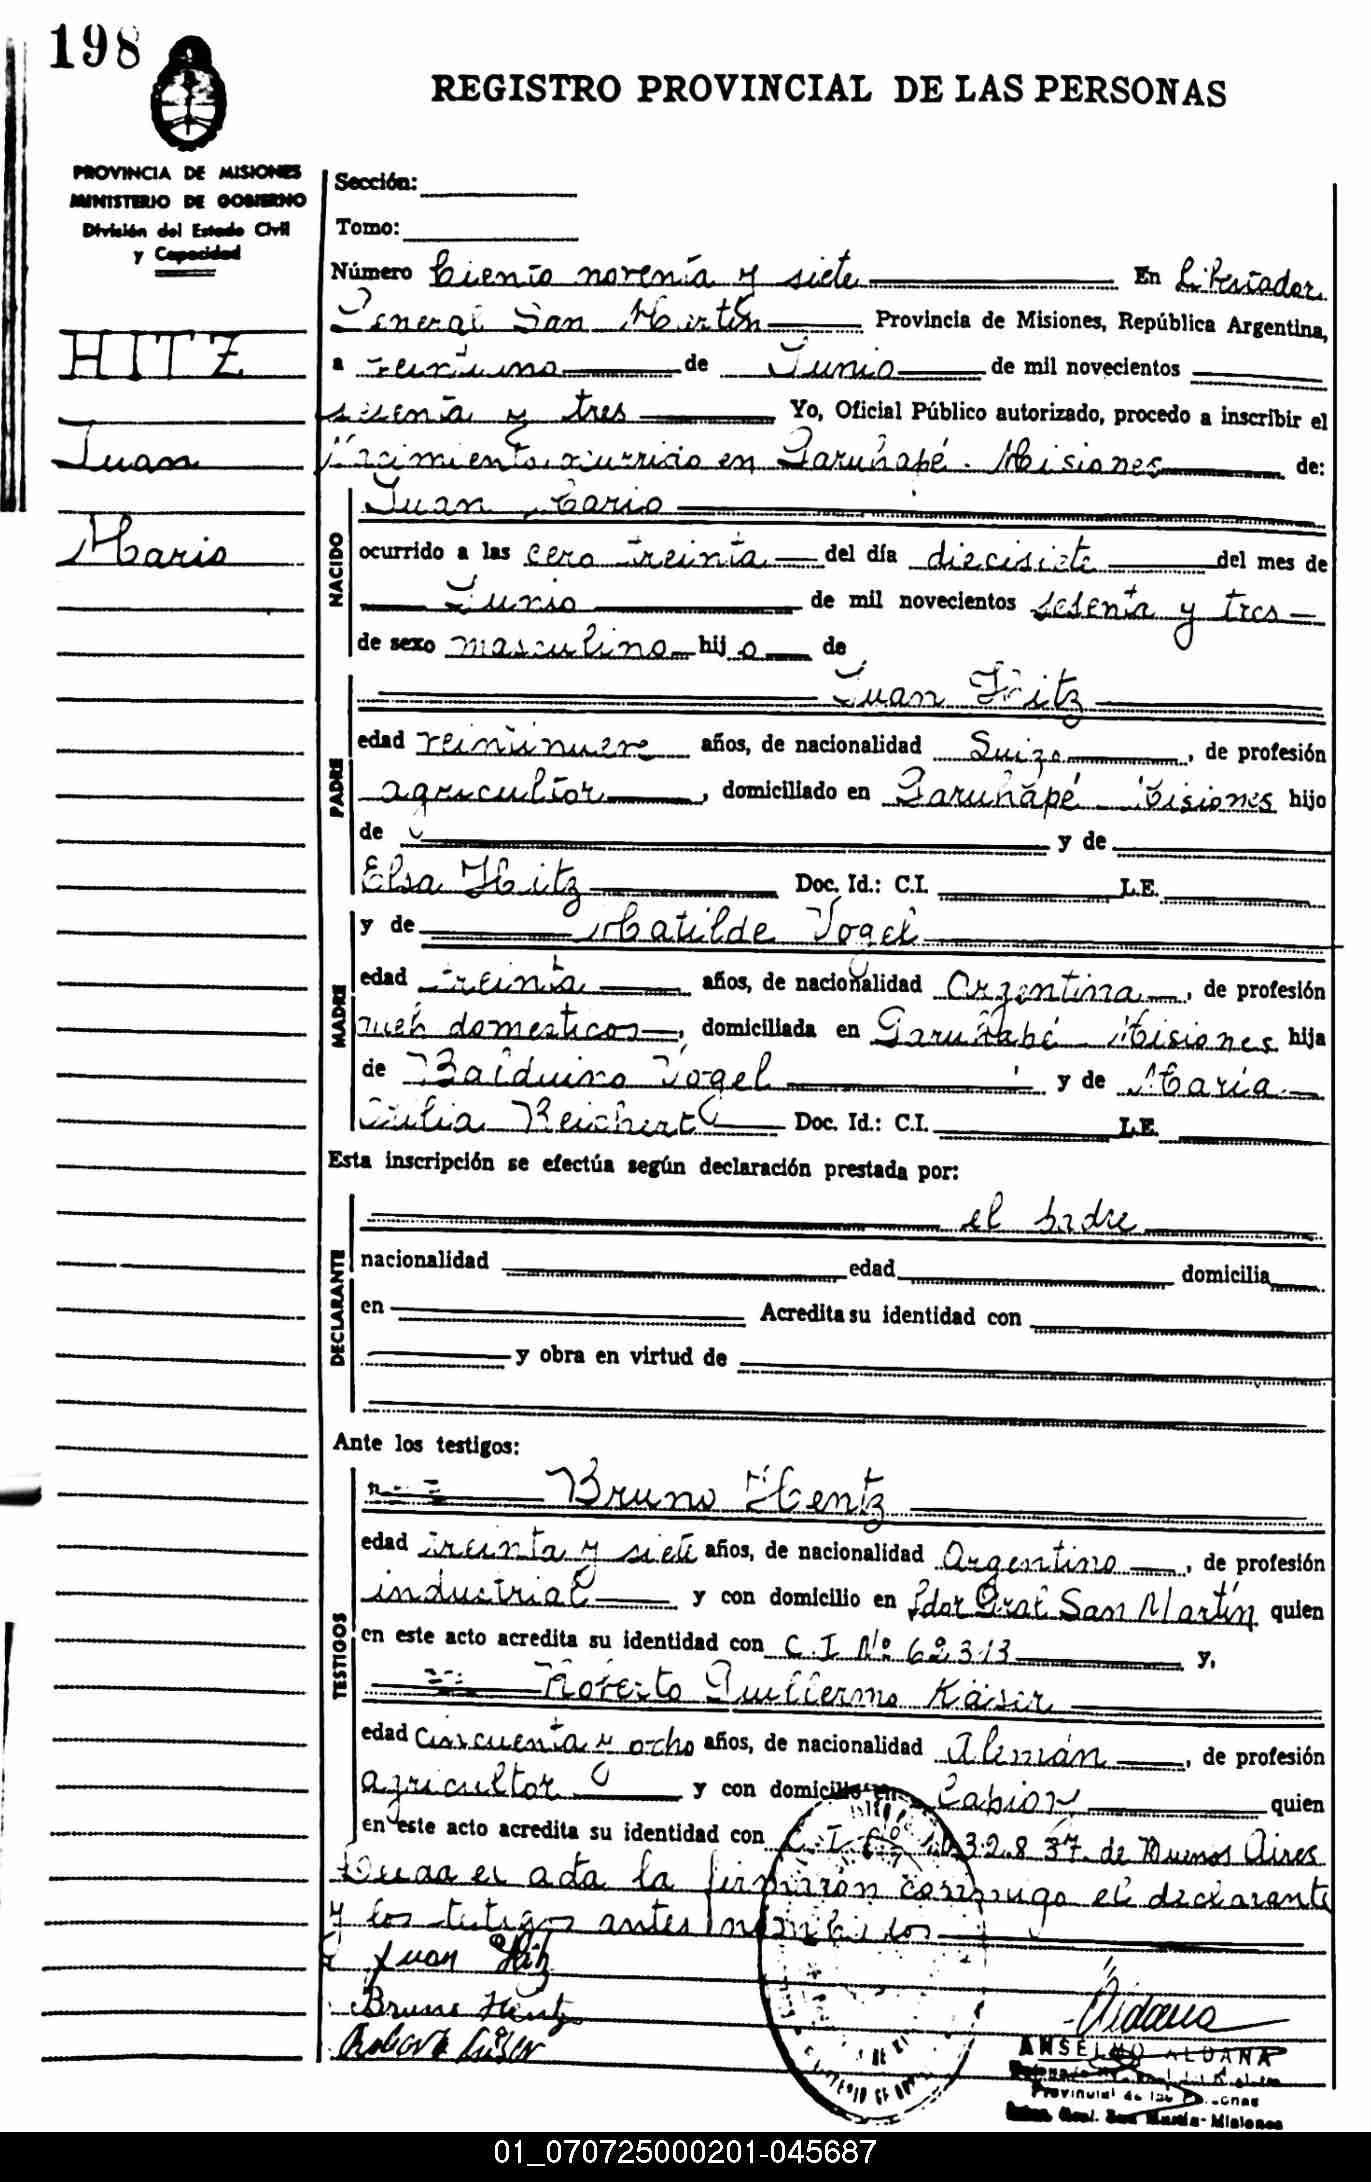 198
REGISTRO PROVINCIAL DE LAS PERSONAS
PROVINCIA DE MISIONES
MINISTERIO DE GOBIERNO
División del Estado Civil
y Capacidad
HITZ
Juan
Mario
Sección:
Tomo:
Número Ciento noventa y siete En Libertador
General San Martín Provincia de Misiones, República Argentina,
a veintiuno de Junio de mil novecientos
sesenta y tres Yo, Oficial Público autorizado, procedo a inscribir el
Nacimiento ocurrido en Garuhapé. Misiones de:
NACIDO
Juan Mario
ocurrido a las cero treinta del día diecisiete del mes de
Junio de mil novecientos sesenta y tres
de sexo masculino hij o de
PADRE
Juan Hitz
edad veintinueve años, de nacionalidad Suizo, de profesión
agricultor, domiciliado en Garuhapé Misiones hijo
de y de
Elsa Hitz Doc. Id.: C.I. L.E.
MADRE
y de Matilde Vogel
edad treinta años, de nacionalidad Argentina, de profesión
queh domesticos, domiciliada en Garuhapé Misiones hija
de Balduino Vogel y de María
Reichert Doc. Id.: C.I. L.E.
Esta inscripción se efectúa según declaración prestada por:
DECLARANTE
el padre
nacionalidad edad domicilia
en Acredita su identidad con
y obra en virtud de
Ante los testigos:
TESTIGOS
Bruno Hentz
edad treinta y siete años, de nacionalidad Argentino, de profesión
industrial y con domicilio en Ldor Gral San Martín quien
en este acto acredita su identidad con C.I Nº 62313 y,
Roberto Guillermo Kaiser
edad cincuenta y ocho años, de nacionalidad Alemán, de profesión
agricultor y con domicilio en Capioví quien
en este acto acredita su identidad con C.I. de Buenos Aires
Leida el acta la firmaron conmigo el declarante
y los testigos antes nombrados
Juan Hitz
Bruno Hentz
Aldana
ANSELMO ALDANA
Provincial de las Personas
Gral. San Martín-Misiones
01_070725000201-045687